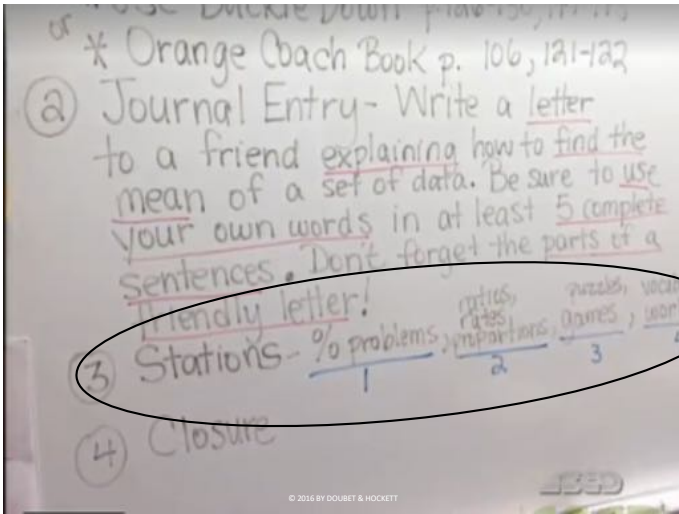 or
* Orange Coach Book p. 106, 121-122
2 Journal Entry- Write a letter
to a friend explaining how to find the
mean of a set of data. Be sure to use
your own words in at least 5 complete
sentences. Don't forget the parts of a
friendly letter!
ratios, puzzles,
rates,
3 Stations- % problems, proportions, games,
1 2 3
4 Closure
© 2016 BY DOUBET & HOCKETT